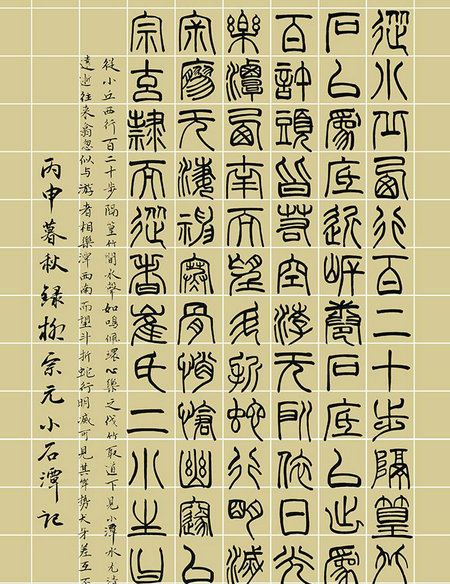 從小丘西行百二十步隔篁竹
石以為底近岸卷石底以出為
百許頭皆若空游无所依日光
樂潭西南而望斗折蛇行明滅
寂寥无淒神寒骨悄愴幽邃以
宗玄隸而從者崔氏二小生曰
從小丘西行百二十步隔篁竹聞水聲如鳴佩環心樂之伐竹取道下見小潭水尤清
遠逝往來翕忽似与游者相樂潭西南而望斗折蛇行明滅可見其岸勢犬牙差互不
丙申暮秋錄柳宗元小石潭記